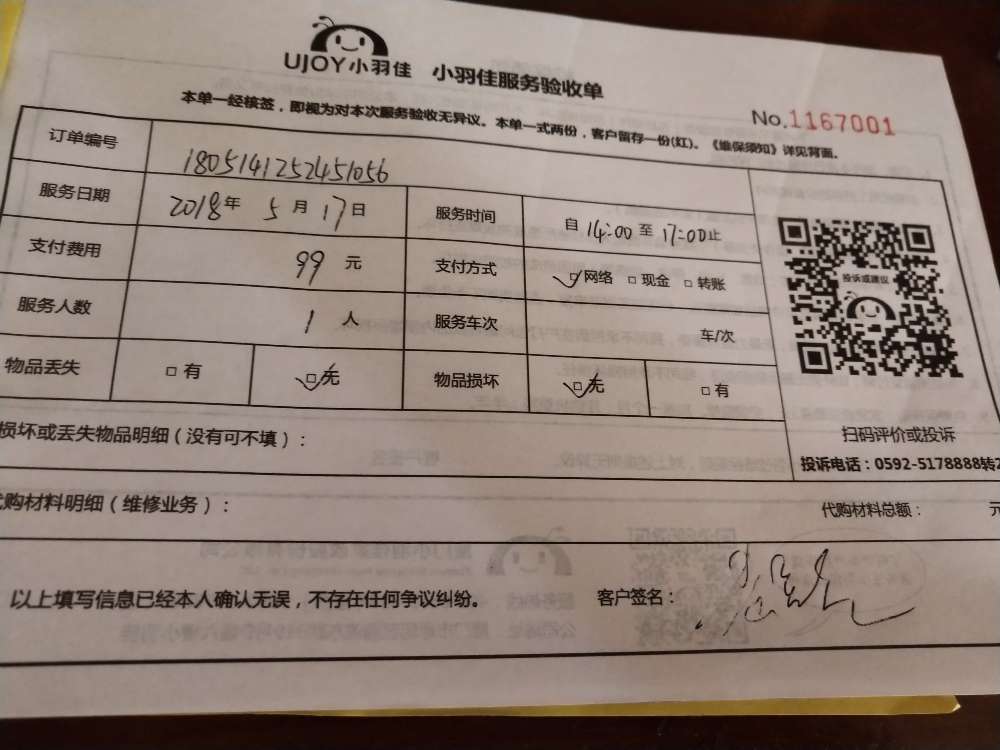 UJOY小羽佳 小羽佳服务验收单
No.1167001
本单一经核签，即视为对本次服务验收无异议。本单一式两份，客户留存一份(红)。《维保须知》详见背面。
订单编号 1805141252451056
服务日期 2018年 5月17日 服务时间 自14:00至17:00止
支付费用 99元 支付方式 网络 现金 转账
服务人数 1人 服务车次 车/次
物品丢失 有 无 物品损坏 无 有
投诉或建议
扫码评价或投诉
投诉电话：0592-5178888转2
损坏或丢失物品明细（没有可不填）：
代购材料明细（维修业务）： 代购材料总额： 元
以上填写信息已经本人确认无误，不存在任何争议纠纷。 客户签名：